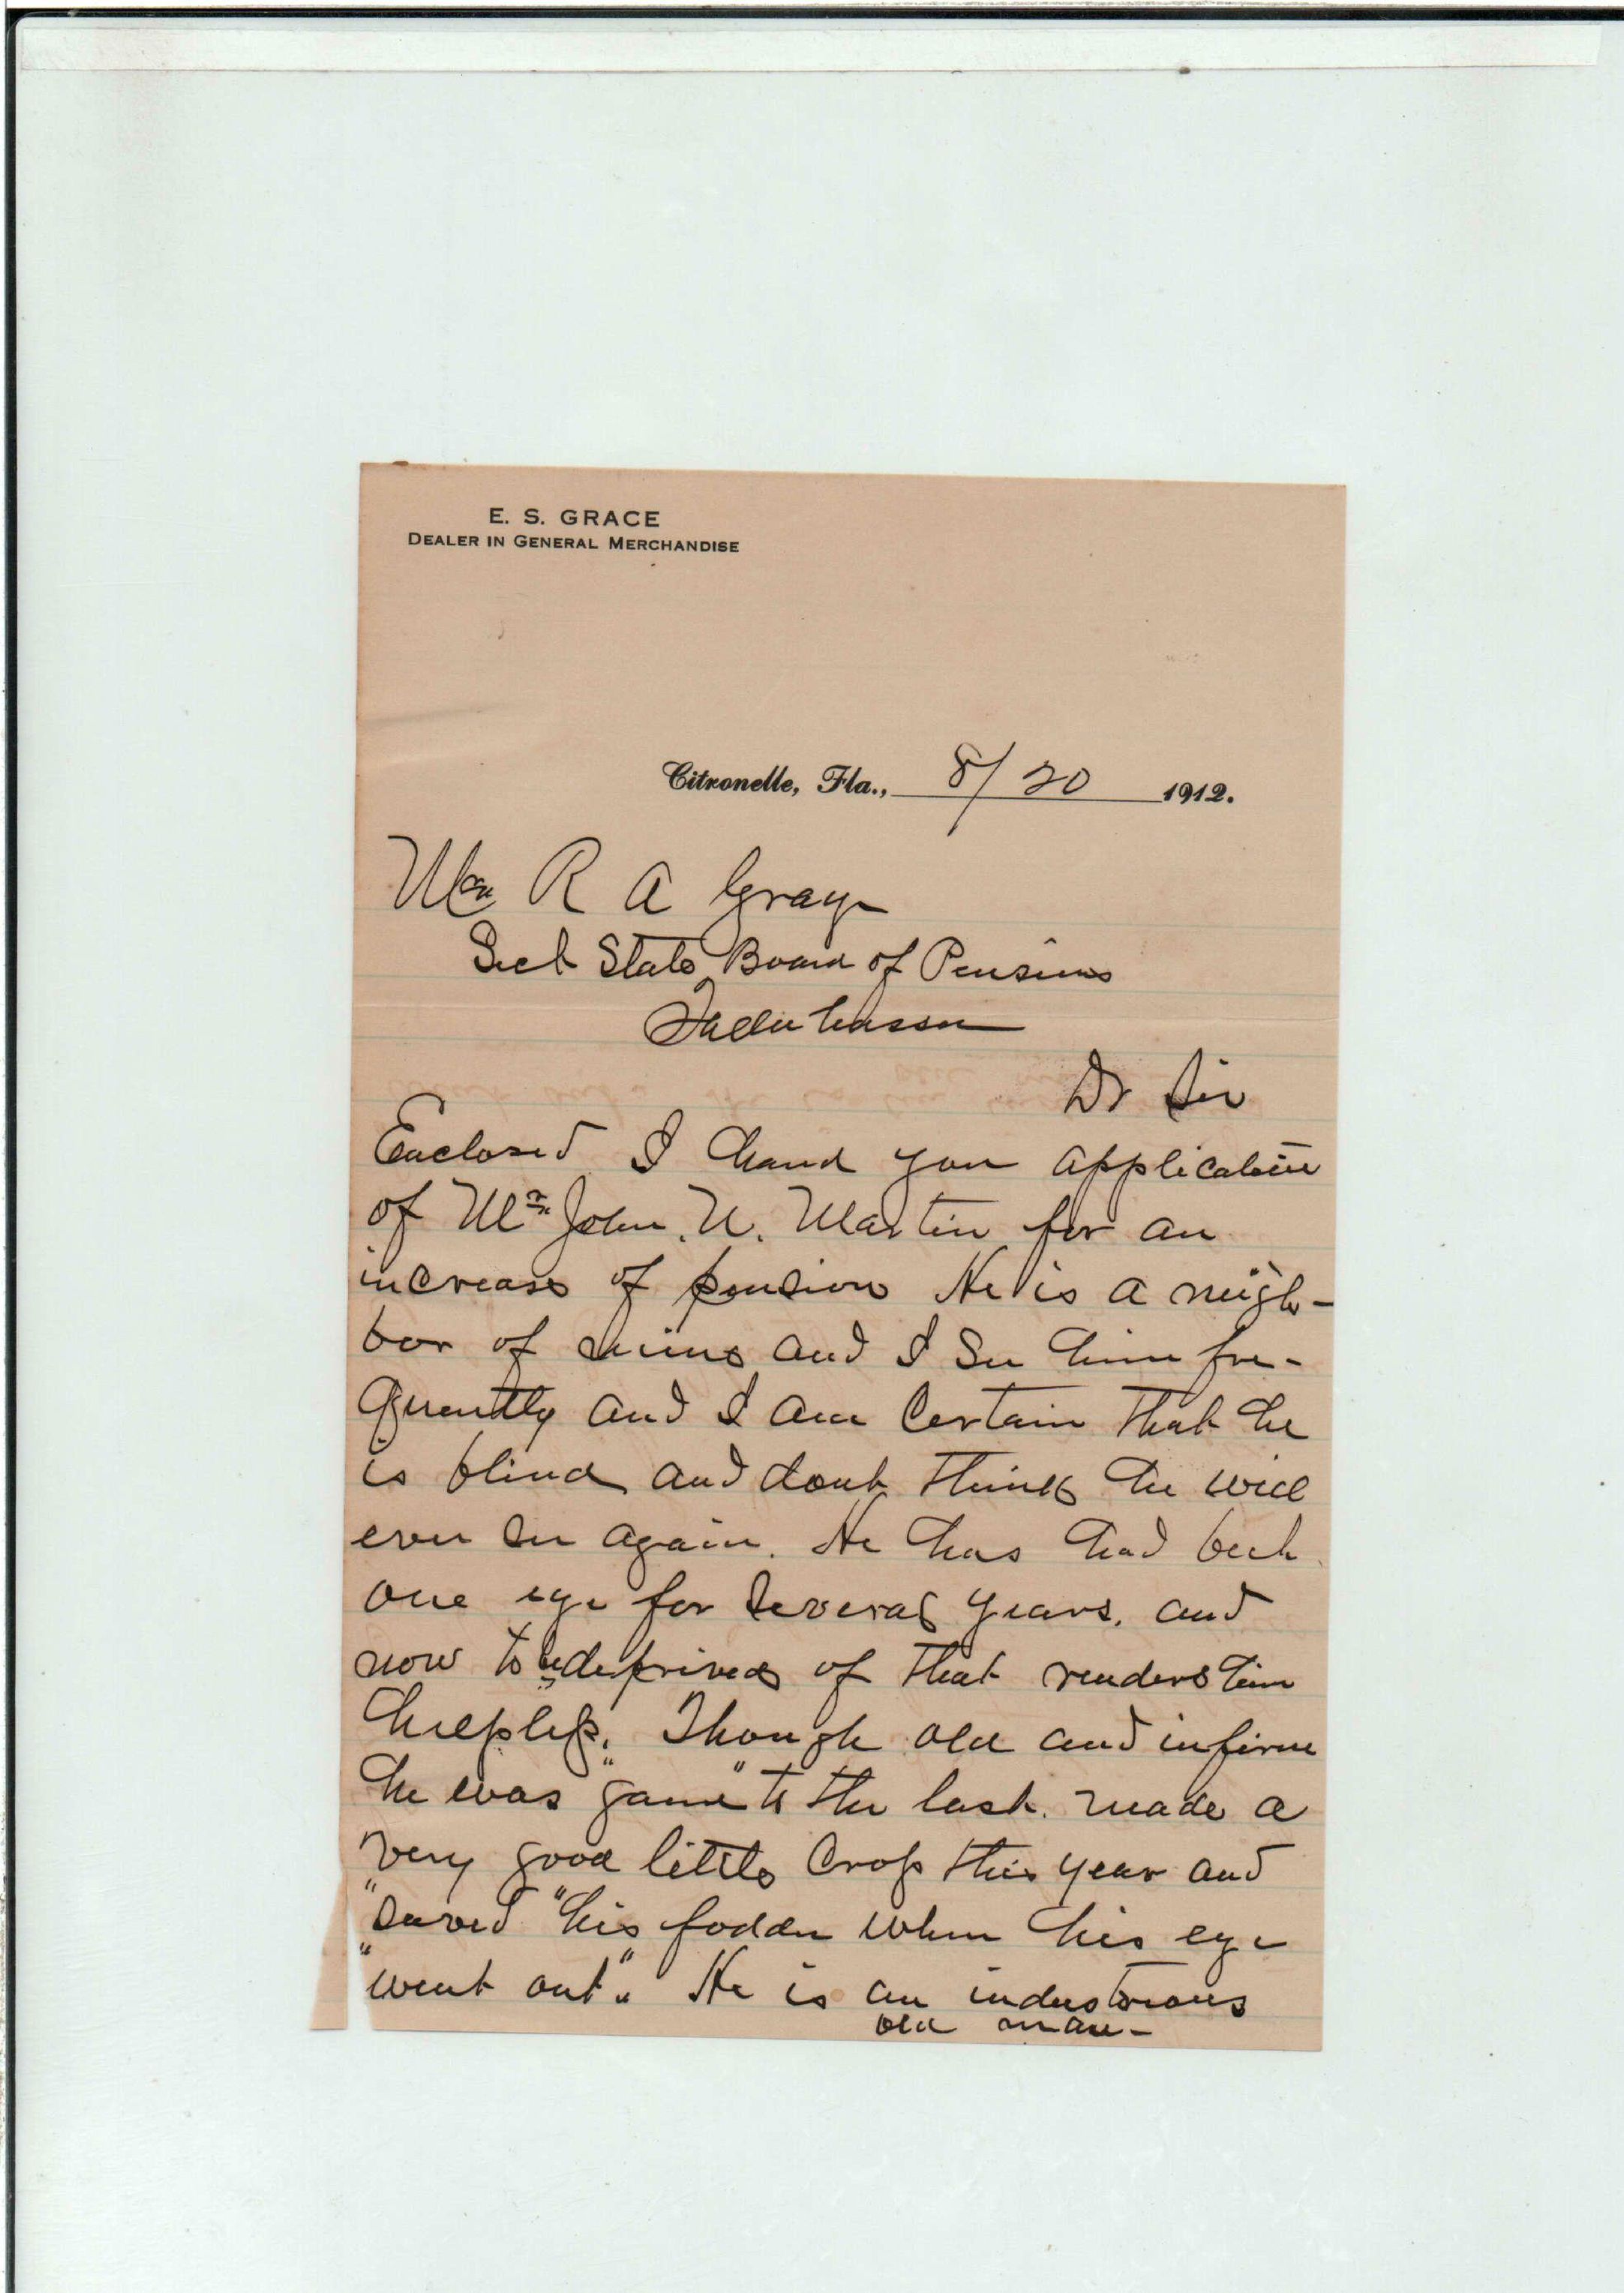 E. S. GRACE
DEALER IN GENERAL MERCHANDISE
Citronelle, Fla., 8/20 1912.
Mr R A Gray
Sect State Board of Pensions
Tallahassee
Dr Sir
Enclosed I hand you application
of Mr. John. N. Martin for an
increase of pension He is a neigh-
bor of mine and I see him fre-
quently and I am certain that he
is blind and dont think he will
ever see again. He has had but
one eye for several years. and
now to be deprived of that renders him
helpless. Though old and infirm
he was "game" to the last. made a
very good little crop this year and
"saved" his fodder when his eye
"went out". He is an industrious
old man-